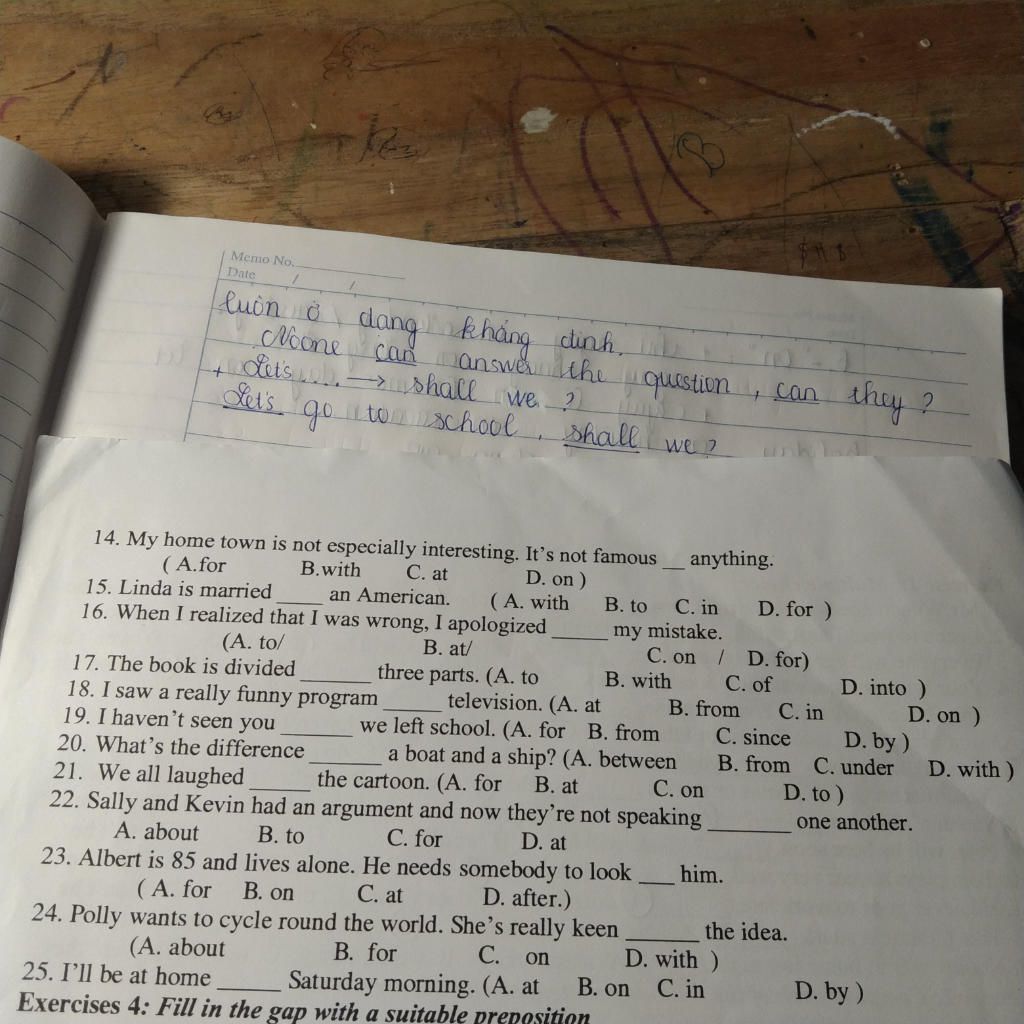 Memo No.
Date / /
luôn ở dạng khẳng định.
Noone can answer the question, can they?
+ Let's .... → shall we ?
Let's go to school, shall we?
14. My home town is not especially interesting. It's not famous __ anything.
( A.for B.with C. at D. on )
15. Linda is married ____ an American. ( A. with B. to C. in D. for )
16. When I realized that I was wrong, I apologized _____ my mistake.
(A. to/ B. at/ C. on / D. for)
17. The book is divided ______ three parts. (A. to B. with C. of D. into )
18. I saw a really funny program _____ television. (A. at B. from C. in D. on )
19. I haven't seen you ______ we left school. (A. for B. from C. since D. by )
20. What's the difference ______ a boat and a ship? (A. between B. from C. under D. with )
21. We all laughed _____ the cartoon. (A. for B. at C. on D. to )
22. Sally and Kevin had an argument and now they're not speaking _______ one another.
A. about B. to C. for D. at
23. Albert is 85 and lives alone. He needs somebody to look ___ him.
( A. for B. on C. at D. after.)
24. Polly wants to cycle round the world. She's really keen ______ the idea.
(A. about B. for C. on D. with )
25. I'll be at home _____ Saturday morning. (A. at B. on C. in D. by )
Exercises 4: Fill in the gap with a suitable preposition